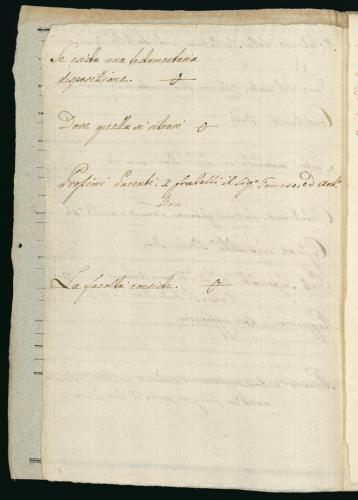 Se esista una testamentaria
disposizione. —o—
Dove quella si ritrovi o
Prossimi Parenti 2 fratelli il Sigr Tomaso, ed Ant.
La facoltà consiste. —o—